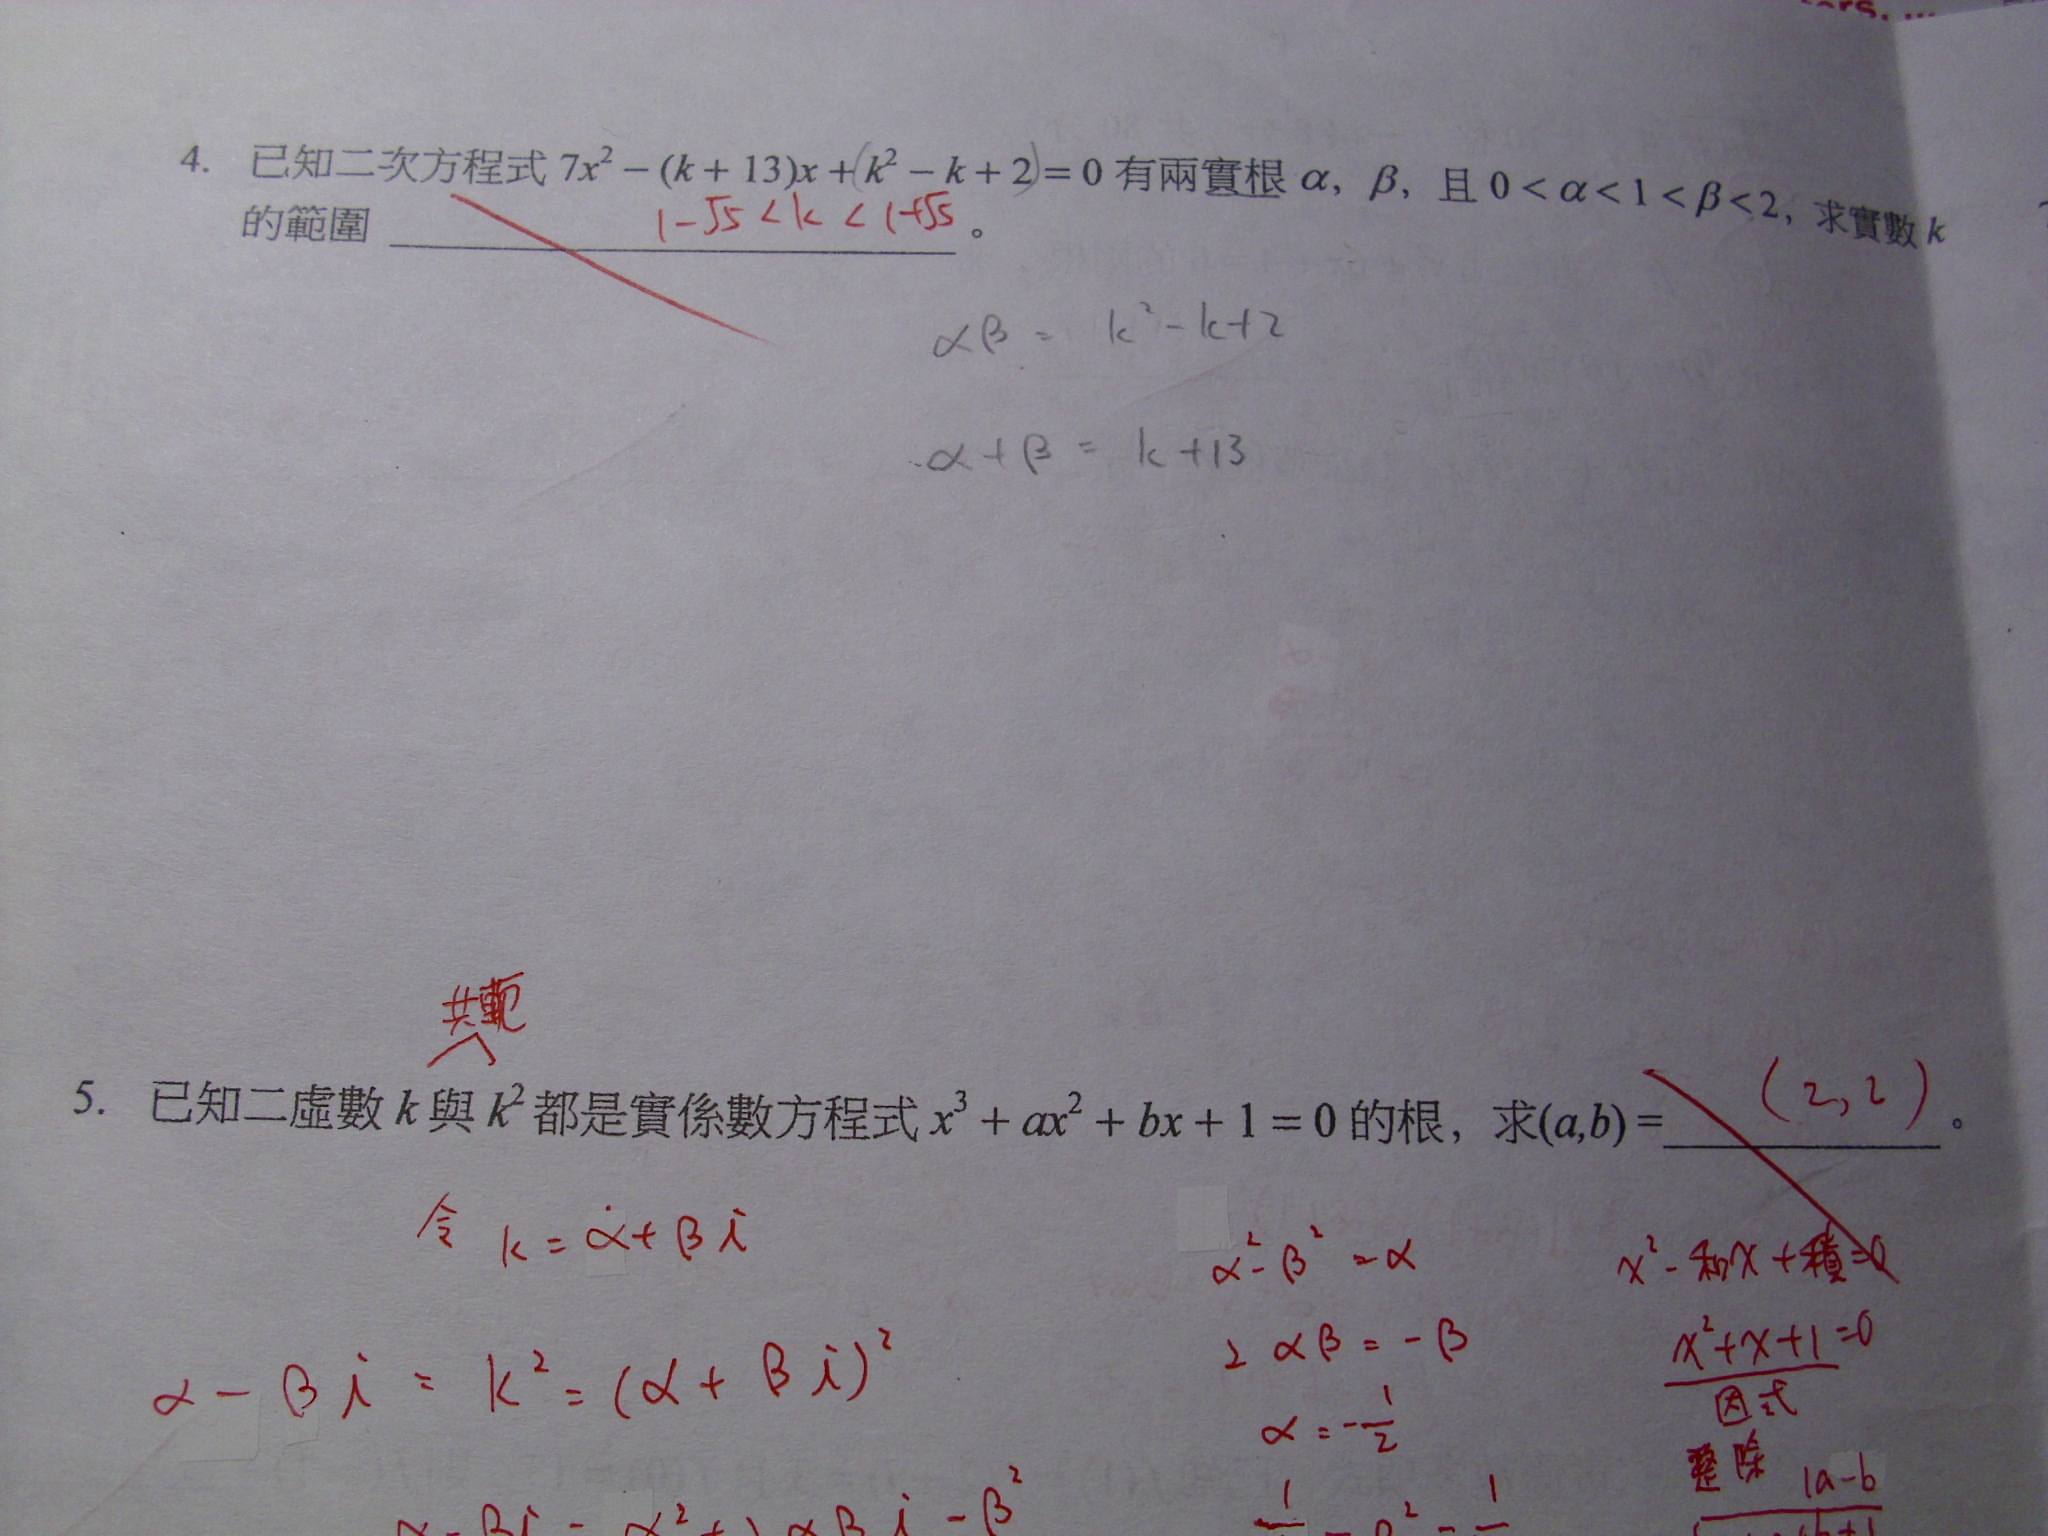 4. 已知二次方程式 7x² − (k + 13)x + (k² − k + 2) = 0 有兩實根 α, β, 且 0 < α < 1 < β < 2, 求實數 k
的範圍 1-√5 < k < 1+√5 。
αβ = k² - k+2
α + β = k +13
共軛
5. 已知二虛數 k 與 k² 都是實係數方程式 x³ + ax² + bx + 1 = 0 的根, 求(a,b) = (2,2) 。
令 k = α + βi
α - βi = k² = (α + βi)²
α - βi = α² + 2αβi - β²
α² - β² = α
2αβ = -β
α = -1/2
x² - 和x + 積 = 0
x² + x + 1 = 0
因式
整除 1a-b